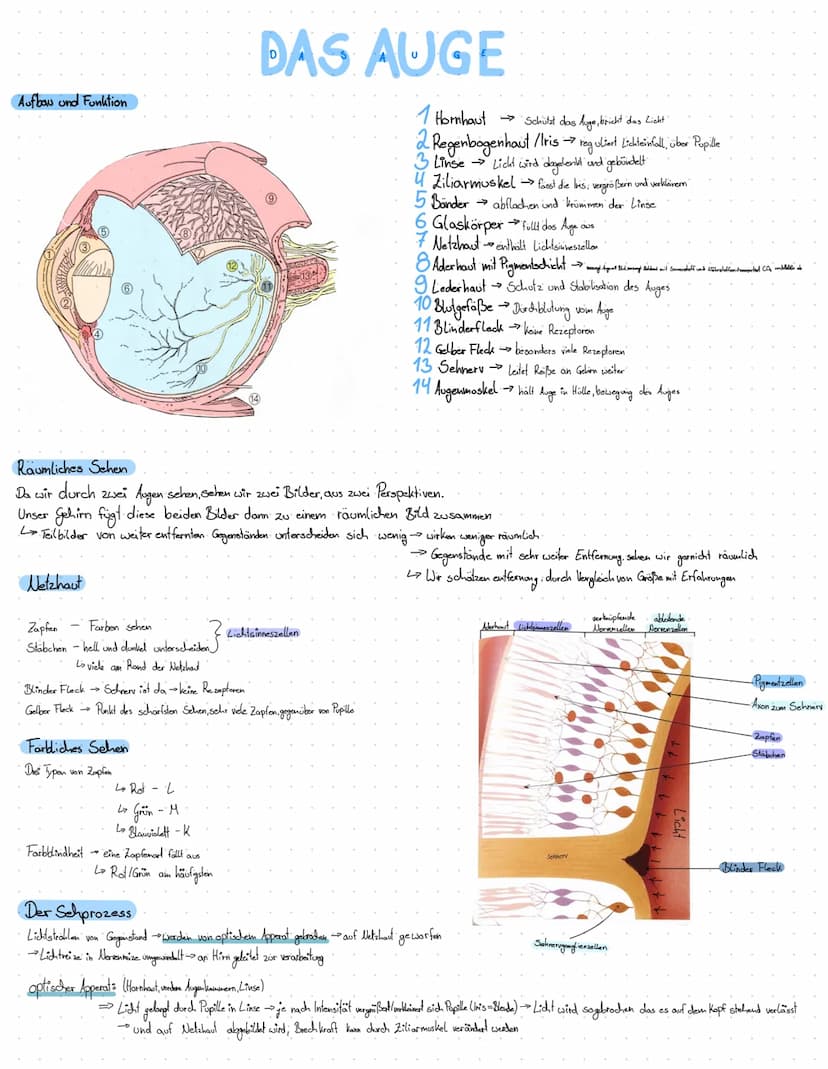 DAS AUGE
DAS AUGE
Aufbau und Funktion
1 Hornhaut → schützt das Auge, bricht das Licht
2 Regenbogenhaut / Iris → reguliert Lichteinfall, über Pupille
3 Linse → Licht wird abgelenkt und gebündelt
4 Ziliarmuskel → fasst die Iris, vergrößern und verkleinern
5 Bänder → abflachen und krümmen der Linse
6 Glaskörper → füllt das Auge aus
7 Netzhaut → enthält Lichtsinneszellen
8 Aderhaut mit Pigmentschicht →
9 Lederhaut → Schutz und Stabilisation des Auges
10 Blutgefäße → Durchblutung vom Auge
11 Blinderfleck → keine Rezeptoren
12 Gelber Fleck → besonders viele Rezeptoren
13 Sehnerv → leitet Reize an Gehirn weiter
14 Augenmuskel → hält Auge in Hülle, bewegung des Auges
1
2
3
4
5
6
7
8
9
10
11
12
13
14
Räumliches Sehen
Da wir durch zwei Augen sehen, sehen wir zwei Bilder, aus zwei Perspektiven.
Unser Gehirn fügt diese beiden Bilder dann zu einem räumlichen Bild zusammen
↳ Teilbilder von weiter entfernten Gegenständen unterscheiden sich wenig → wirken weniger räumlich
→ Gegenstände mit sehr weiter Entfernung, sehen wir garnicht räumlich
↳ Wir schätzen entfernung, durch Vergleich von Größe mit Erfahrungen
Netzhaut
Zapfen - Farben sehen
Stäbchen - hell und dunkel unterscheiden } Lichtsinneszellen
↳ viele am Rand der Netzhaut
Blinder Fleck → Sehnerv ist da → keine Rezeptoren
Gelber Fleck → Punkt des scharfsten Sehen, sehr viele Zapfen, gegenüber von Pupille
Aderhaut Lichtsinneszellen verknüpfende Nervenzellen ableitende Nervenzellen
Pigmentzellen
Axon zum Sehnerv
Zapfen
Stäbchen
Licht
Sehnerv
Blinder Fleck
Sehnervganglienzellen
Farbliches Sehen
Drei Typen von Zapfen
↳ Rot - L
↳ Grün - M
↳ Blauviolett - K
Farbblindheit → eine Zapfenart fällt aus
↳ Rot/Grün am häufigsten
Der Sehprozess
Lichtstrahlen von Gegenstand → werden von optischem Apperat gebrochen → auf Netzhaut geworfen
→ Lichtreize in Nervenreize umgewandelt → an Hirn geleitet zur verarbeitung
optischer Apperat: (Hornhaut, vordere Augenkammern, Linse)
⇒ Licht gelangt durch Pupille in Linse → je nach Intensität vergrößert/verkleinert sich Pupille (Iris = Blende) → Licht wird so gebrochen das es auf dem Kopf stehend verlässt
→ und auf Netzhaut abgebildet wird, Brechkraft kann durch Ziliarmuskel verändert werden